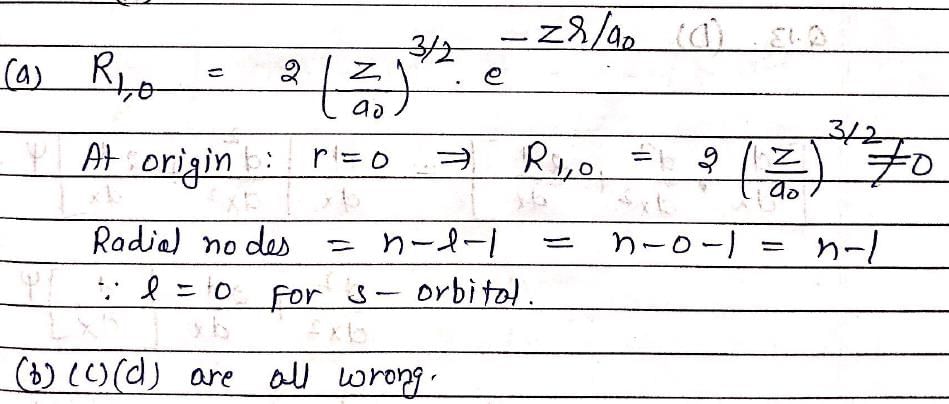 (a) R₁,₀ = 2 (Z/a₀)^3/2 . e^-Zr/a₀
At origin : r = 0 ⇒ R₁,₀ = 2 (Z/a₀)^3/2 ≠ 0
Radial nodes = n-l-1 = n-0-1 = n-1
∵ l = 0 For s- orbital.
(b) (c) (d) are all wrong.